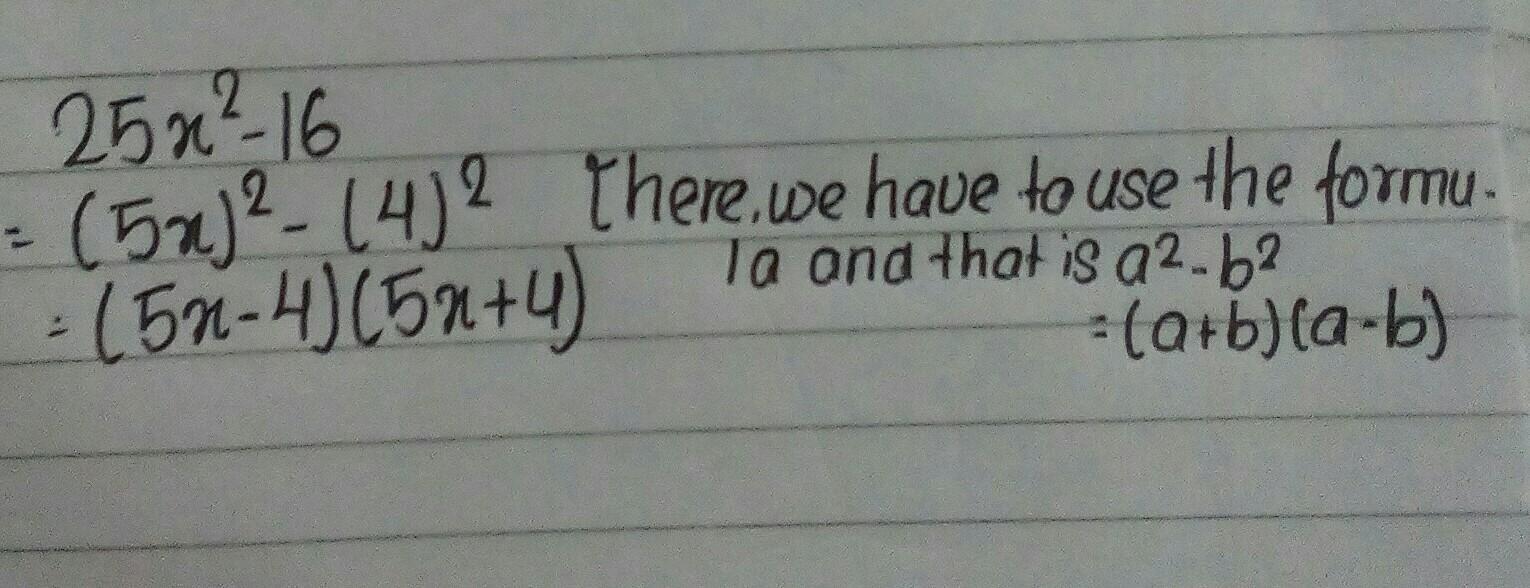 25x²-16
= (5x)² - (4)² There, we have to use the formu-
la and that is a²-b²
= (5x-4)(5x+4)
= (a+b)(a-b)